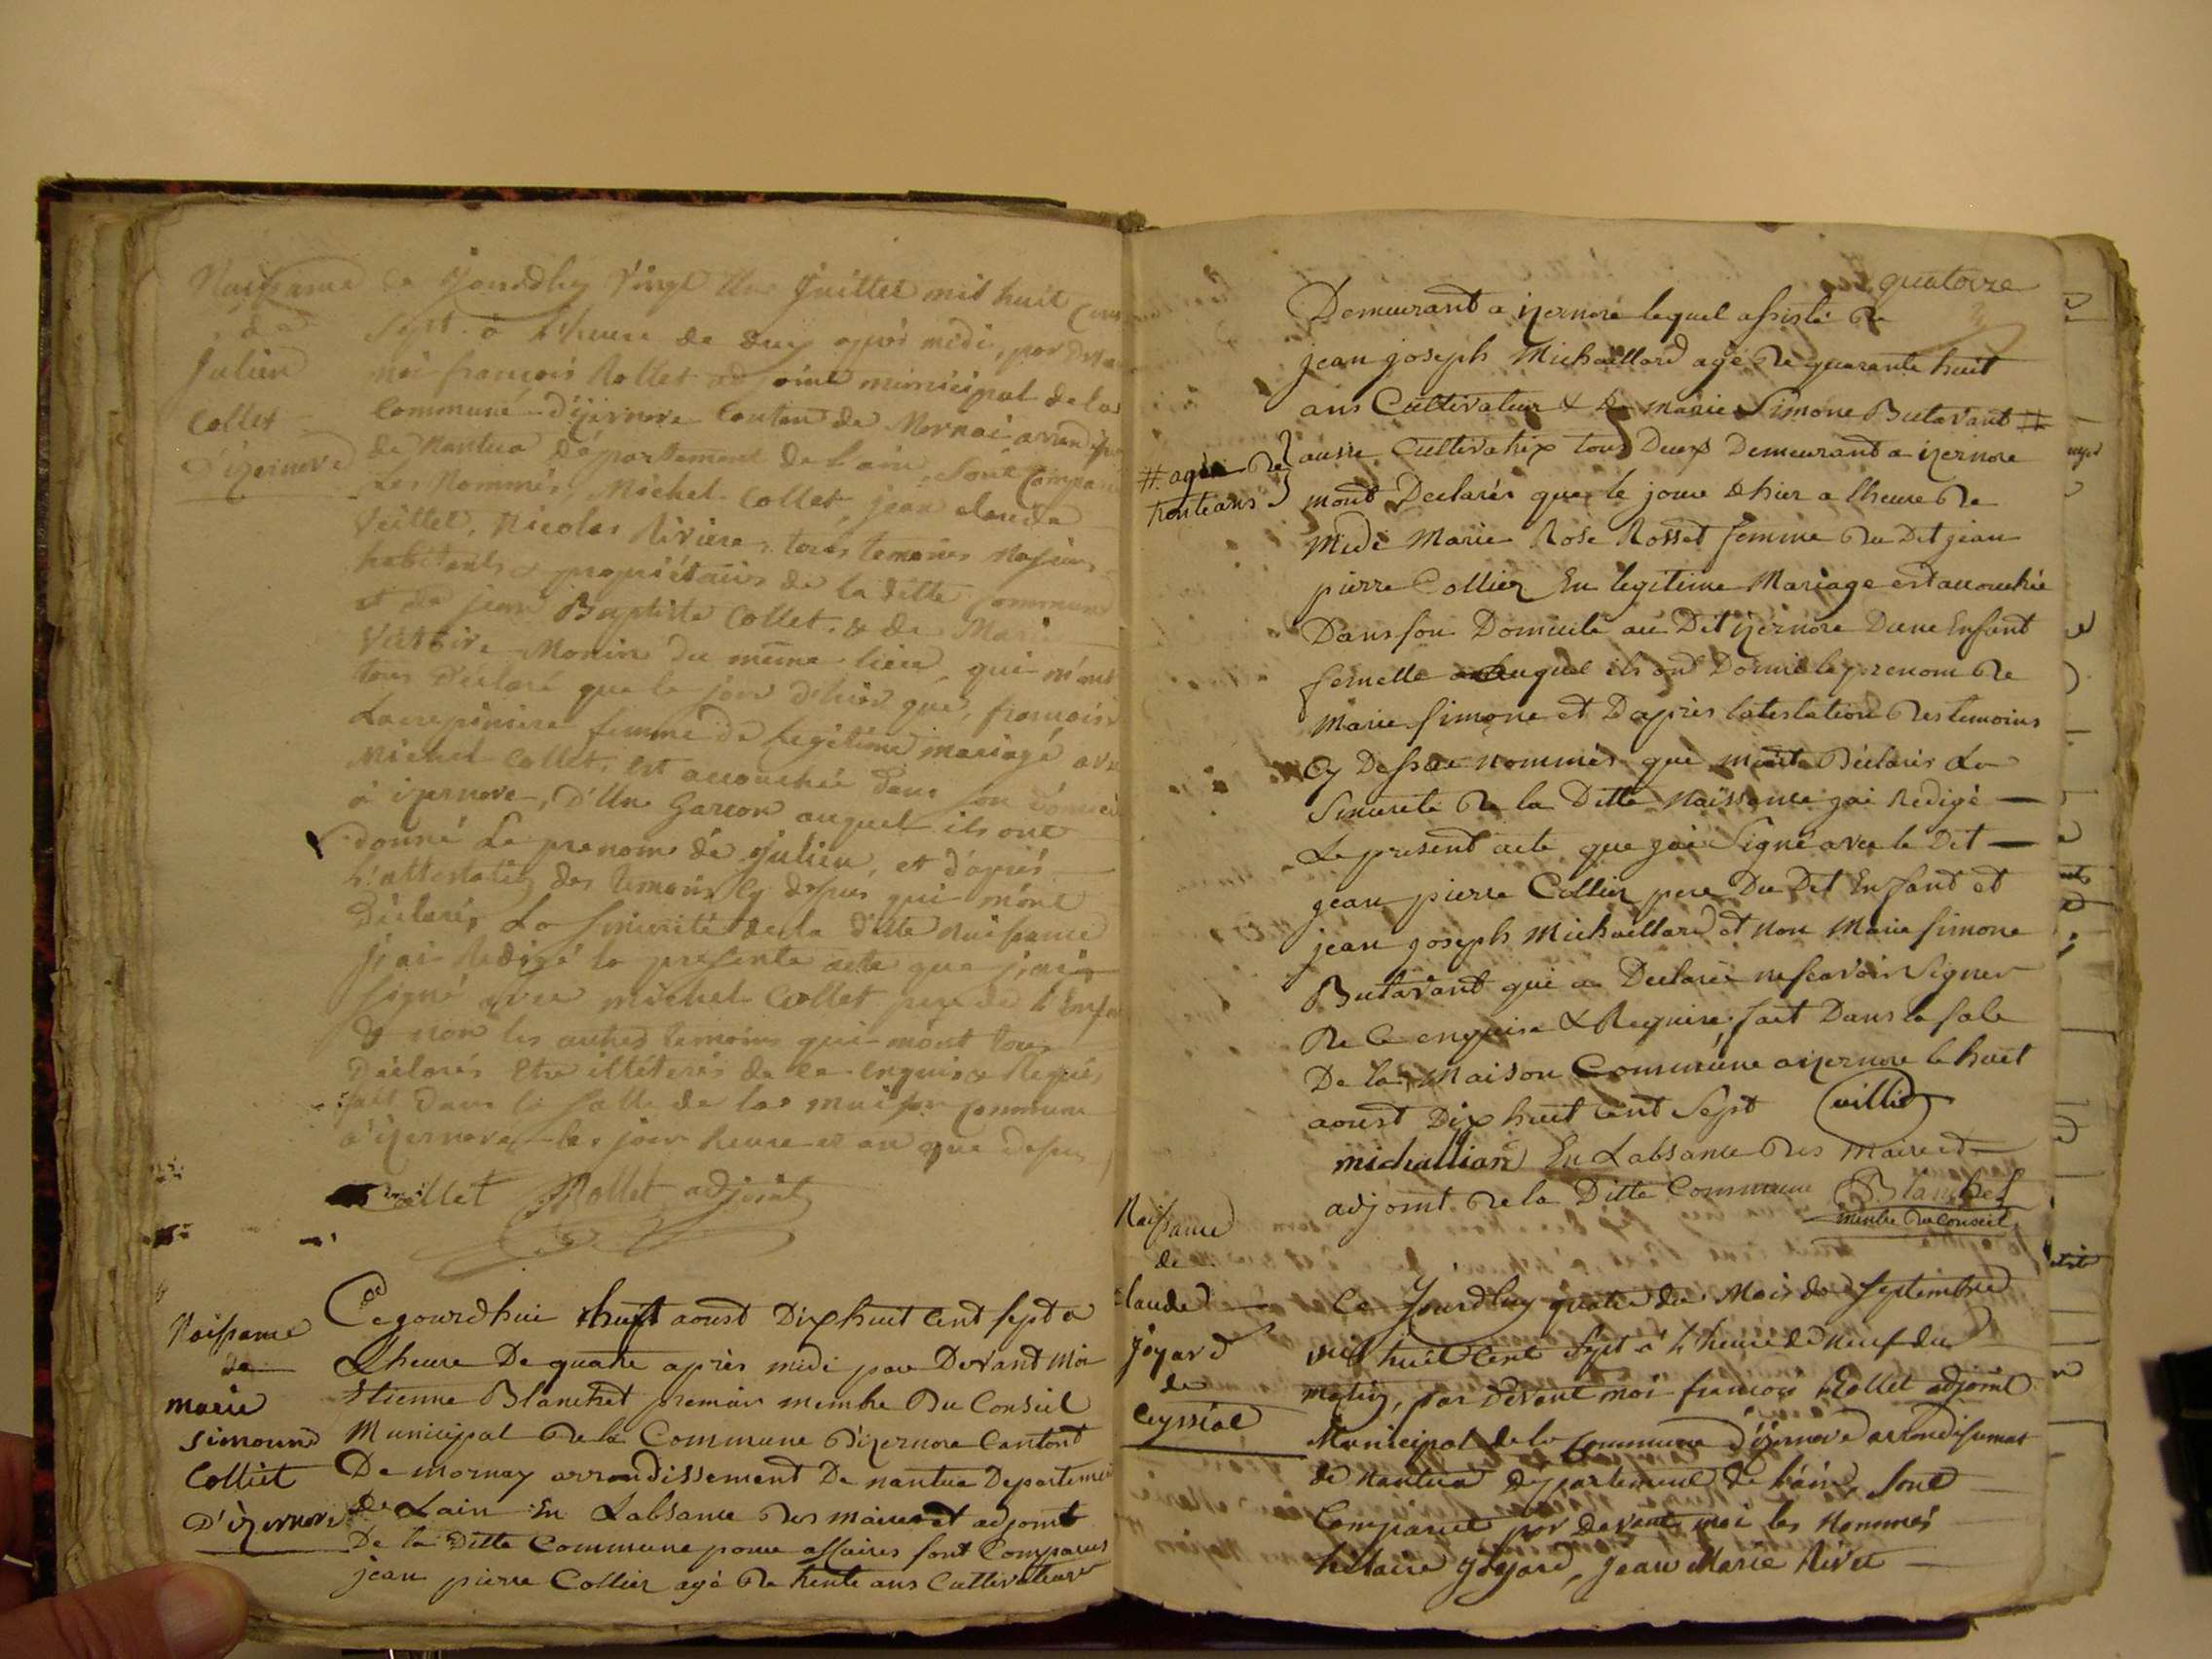 Naissance
de
Julien
Collet
d'izernore
Ce Jourdhuy Vingt Un Juillet mil huit Cent
Sept à L'heure de deux après midi, par Devant
moi françois Rollet adjoint municipal de la
Commune d'izernore Canton de Mornai arrondi
de Nantua département de Lain, sont Comparu
Les Nommés, Michel Collet, jean claude
Veillet, Nicolas Riviere, tous temoins Majeurs
habitants & propriétaires de la ditte Commune
et de jean Baptiste Collet & de Marie
Monin du même lieu, qui m'ont
tous déclaré que le jour d'hier que, françoise
femme de legitime mariage avec
Michel Collet, est accouchée dans son domici
à izernore, d'Un Garcon auquel ils ont
donné Le prenom de Julien, et d'après
L'attestation des temoins Cy dessus qui m'ont
Déclarés La sincerité de la ditte naissance
j'ai Redigé le presente acte que j'ai
signé avec Michel Collet pere de L'Enfan
& non les autres temoins qui m'ont tous
Déclarés Etre illéterés de ce enquis & Requis
fait dans la salle de la maison Commune
d'izernore les jour heure et an que dessus
Collet Rollet adjoint
Naissance
de
marie
simonne
Colliet
D'izernore
Cegourdhui huit aoust Dixhuit Cent sept a
Lheure De quatre après midi par Devant Moi
Etienne Blanchet premier membre Du Conseil
Municipal De la Commune D'izernore Cantont
De mornay arrondissement De nantua Departement
de Lain En Labsance Des maire et adjoint
De la Ditte Commune pour affaires sont Comparus
jean pierre Collier agé De trente ans Cultivateur
quatorze
Demeurant a izernore lequel assisté De
jean joseph Michaillard agé De quarante huit
ans Cultivateur & De Marie Simone Butavant #
# agée De
trente ans
aussi Cultivatrix tous Deux Demeurant a izernore
mont Declarés que le jour dhier a lheure De
Midi Marie Rose Rosset femme Du Dit jean
pierre Collier En legitime Mariage est accouchée
Dans son Domicile au Dit izernore Dune Enfant
femelle auquel ils ont Donné le prenom De
Marie Simone et Dapres latestation Des temoins
Cy Dessus nommés qui mont Déclarés La
Sincerité De la Ditte Naissance jai Redigé
Le present acte que jai Signé avec le Dit
jean pierre Collier pere Du Dit Enfant et
jean joseph Michaillard et non Marie simone
Butavant qui a Declarée ne scavoir Signer
De Ce enquise & Requise, fait Dans la sale
De la Maison Commune a izernore le huit
aoust Dix huit Cent Sept
michallian En Labsance Des Maire et
adjoint De la Ditte Commune Blanchet
membre Du Conseil
Naissance
de
Claude
Joyard
de
Ceyssiat
Ce Jourdhuy quatre du Mois de Septembre
mil huit Cent Sept à L'heure de Neuf du
matin, par devant moi francois Rollet adjoint
Municipal de la Commune d'izernore arrondissement
de Nantua département de L'ain, sont
Comparut par devant moi les Nommés
hilaire Joyard, Jean Marie Rivet